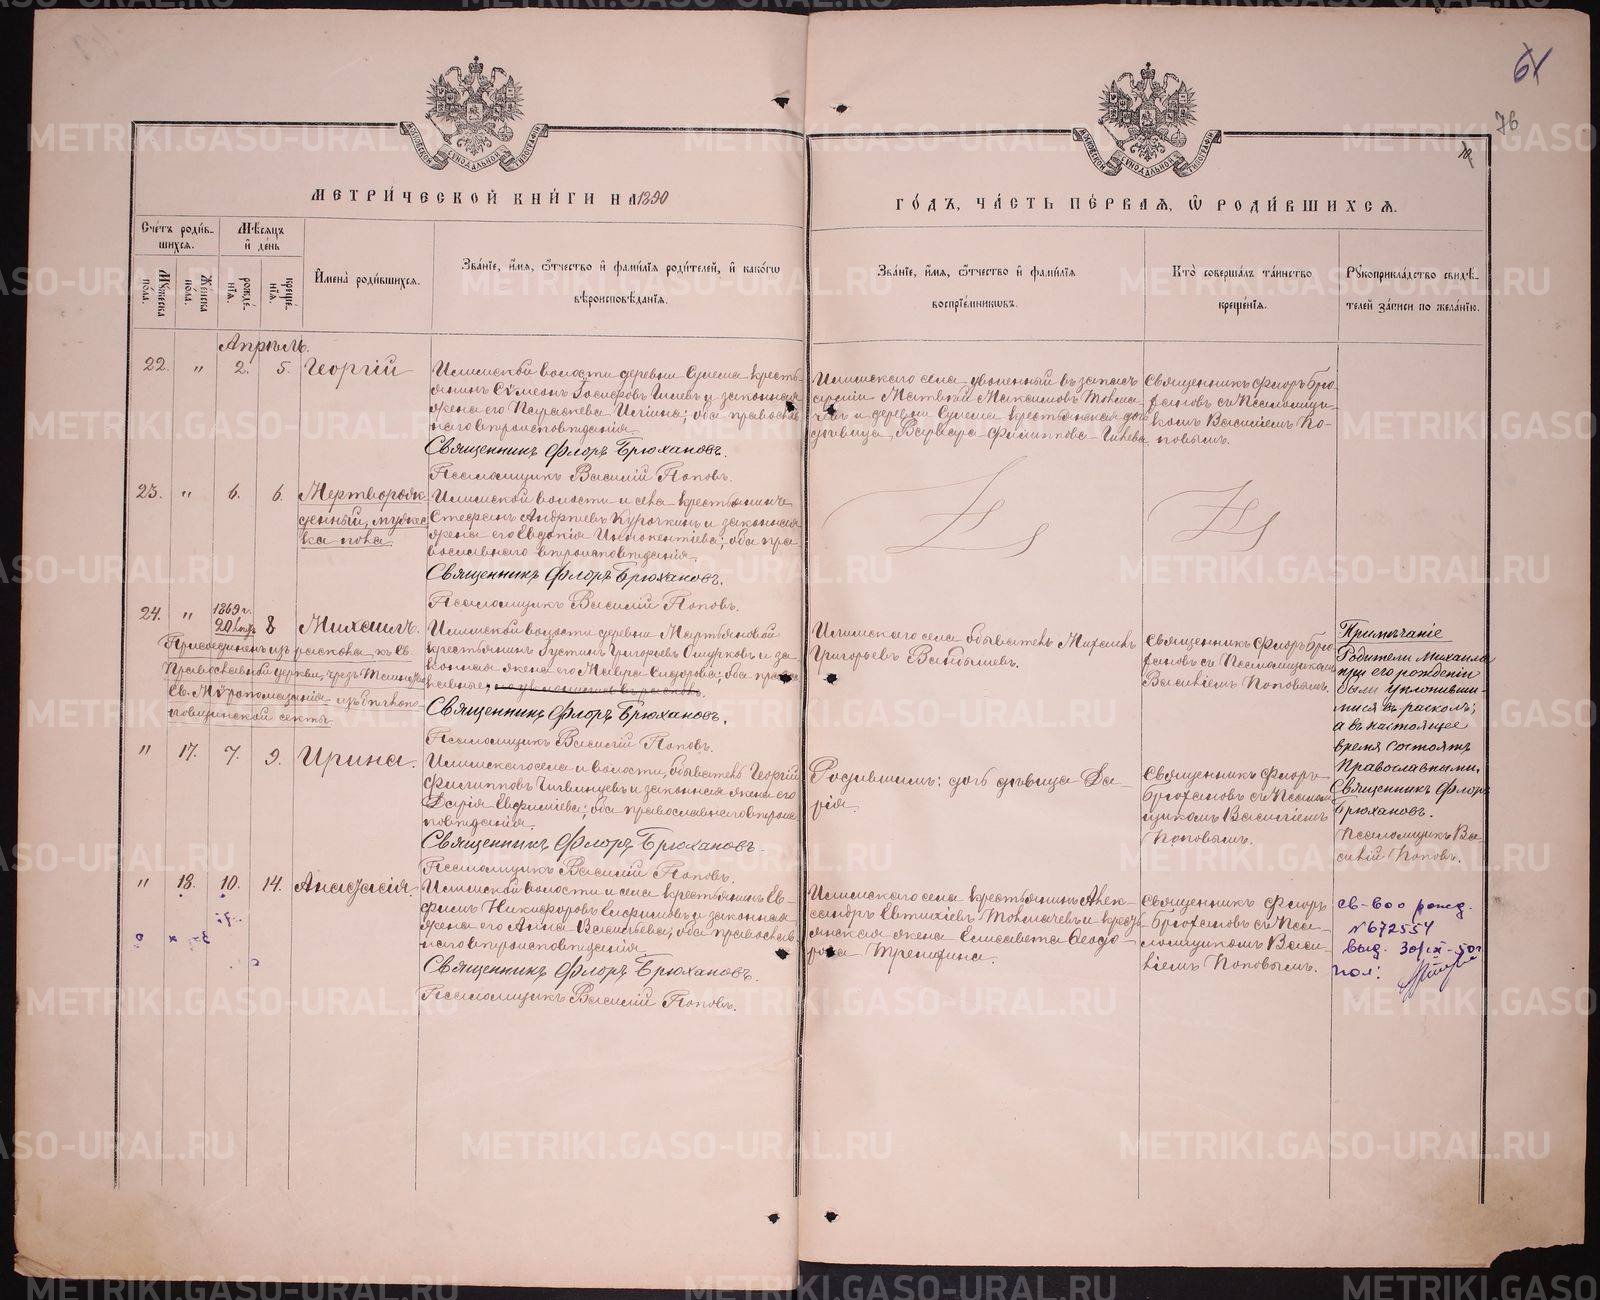 61
76
МОСКОВСКОЙ СѴНОДАЛЬНОЙ ТИПОГРАФІИ
МОСКОВСКОЙ СѴНОДАЛЬНОЙ ТИПОГРАФІИ
МЕТРИ́ЧЕСКОЙ КНИ́ГИ НА 1890
ГО́ДЪ, ЧА́СТЬ ПЕ́РВАЯ, Ѡ РОДИ́ВШИХСЯ.
Сче́тъ роди́в-
шихся.
Мꙋ́жеска по́ла.
Же́нска по́ла.
Мѣ́сяцъ
и҆ де́нь
рожде́-
нїя.
креще́-
нїя.
И҆мена̀ роди́вшихся.
Зва́нїе, и҆́мя, ѻ҆́тчество и҆ фами́лїя роди́телей, и҆ како́гѡ
вѣроисповѣ́данїя.
Зва́нїе, и҆́мя, ѻ҆́тчество и҆ фами́лїя
воспрїе́мниковъ.
Кто̀ соверша́лъ та́инство
креще́нїя.
Рꙋкоприкла́дство свидѣ́-
телей за́писи по жела́нїю.
Апрѣль.
22. " 2. 5. Георгій
Илимской волости деревни Сулема кресть-
янинъ Сѵмеонъ Іосифовъ и законная
жена его Параскева Ильина; оба православ-
наго вѣроисповѣданія.
Священникъ Флоръ Брюхановъ.
Псаломщикъ Василій Поповъ.
Илимскаго села уволенный въ запасъ
арміи Матвѣй Максимовъ Токма-
чевъ и деревни Сулема крестьянская дочь
дѣвица Варвара Филиппова
Священникъ Флоръ Брю-
хановъ съ Псаломщи-
комъ Василіемъ По-
повымъ.
23. " 6. 6. Мертворож-
денный, мужес-
ка пола
Илимской волости и села крестьянинъ
Стефанъ Андреевъ Курочкинъ и законная
жена его Евдокія Иннокентіева; оба пра-
вославнаго вѣроисповѣданія.
Священникъ Флоръ Брюхановъ.
Псаломщикъ Василій Поповъ.
24. " 1869 г. 20 8 Михаилъ.
Присоединенъ изъ раскола къ Св.
Православной церкви, чрезъ Таинство
Св. Мѵропомазанія изъ бѣглопо-
повщинской секты
Илимской волости деревни Мартьяновой
крестьянинъ Іустинъ Григорьевъ Ошурковъ и за-
конная жена его Мавра Сидорова; оба право-
славные,
Священникъ Флоръ Брюхановъ.
Псаломщикъ Василій Поповъ.
Илимскаго села обыватель Михаилъ
Григорьевъ
Священникъ Флоръ Брю-
хановъ съ Псаломщикомъ
Василіемъ Поповымъ.
Примѣчаніе
Родители Михаила
при его рожденіи
были уклонивши-
мися въ расколъ;
а въ настоящее
время состоятъ
Православными.
Священникъ Флоръ
Брюхановъ.
Псаломщикъ Ва-
силій Поповъ.
" 17. 7. 9. Ирина.
Илимскаго села и волости, обыватель Георгій
Филипповъ и законная жена его
Дарія Евфиміева; оба православнаго вѣроис-
повѣданія.
Священникъ Флоръ Брюхановъ.
Псаломщикъ Василій Поповъ.
дочь дѣвица Да-
рія.
Священникъ Флоръ
Брюхановъ съ Псалом-
щикомъ Василіемъ
Поповымъ.
" 18. 10. 14. Анастасія.
Илимской волости и села крестьянинъ Ев-
фимъ Никифоровъ и законная
жена его Анна Васильева; оба православ-
наго вѣроисповѣданія.
Священникъ Флоръ Брюхановъ.
Псаломщикъ Василій Поповъ.
Илимскаго села крестьянинъ Алек-
сандръ Евтихіевъ Токмачевъ и кресть-
янская жена Елисавета Ѳеодо-
рова
Священникъ Флоръ
Брюхановъ съ Пса-
ломщикомъ Васи-
ліемъ Поповымъ.
св-во рожд.
№672554
выд. 30/IX-50г
пол:
METRIKI.GASO-URAL.RU